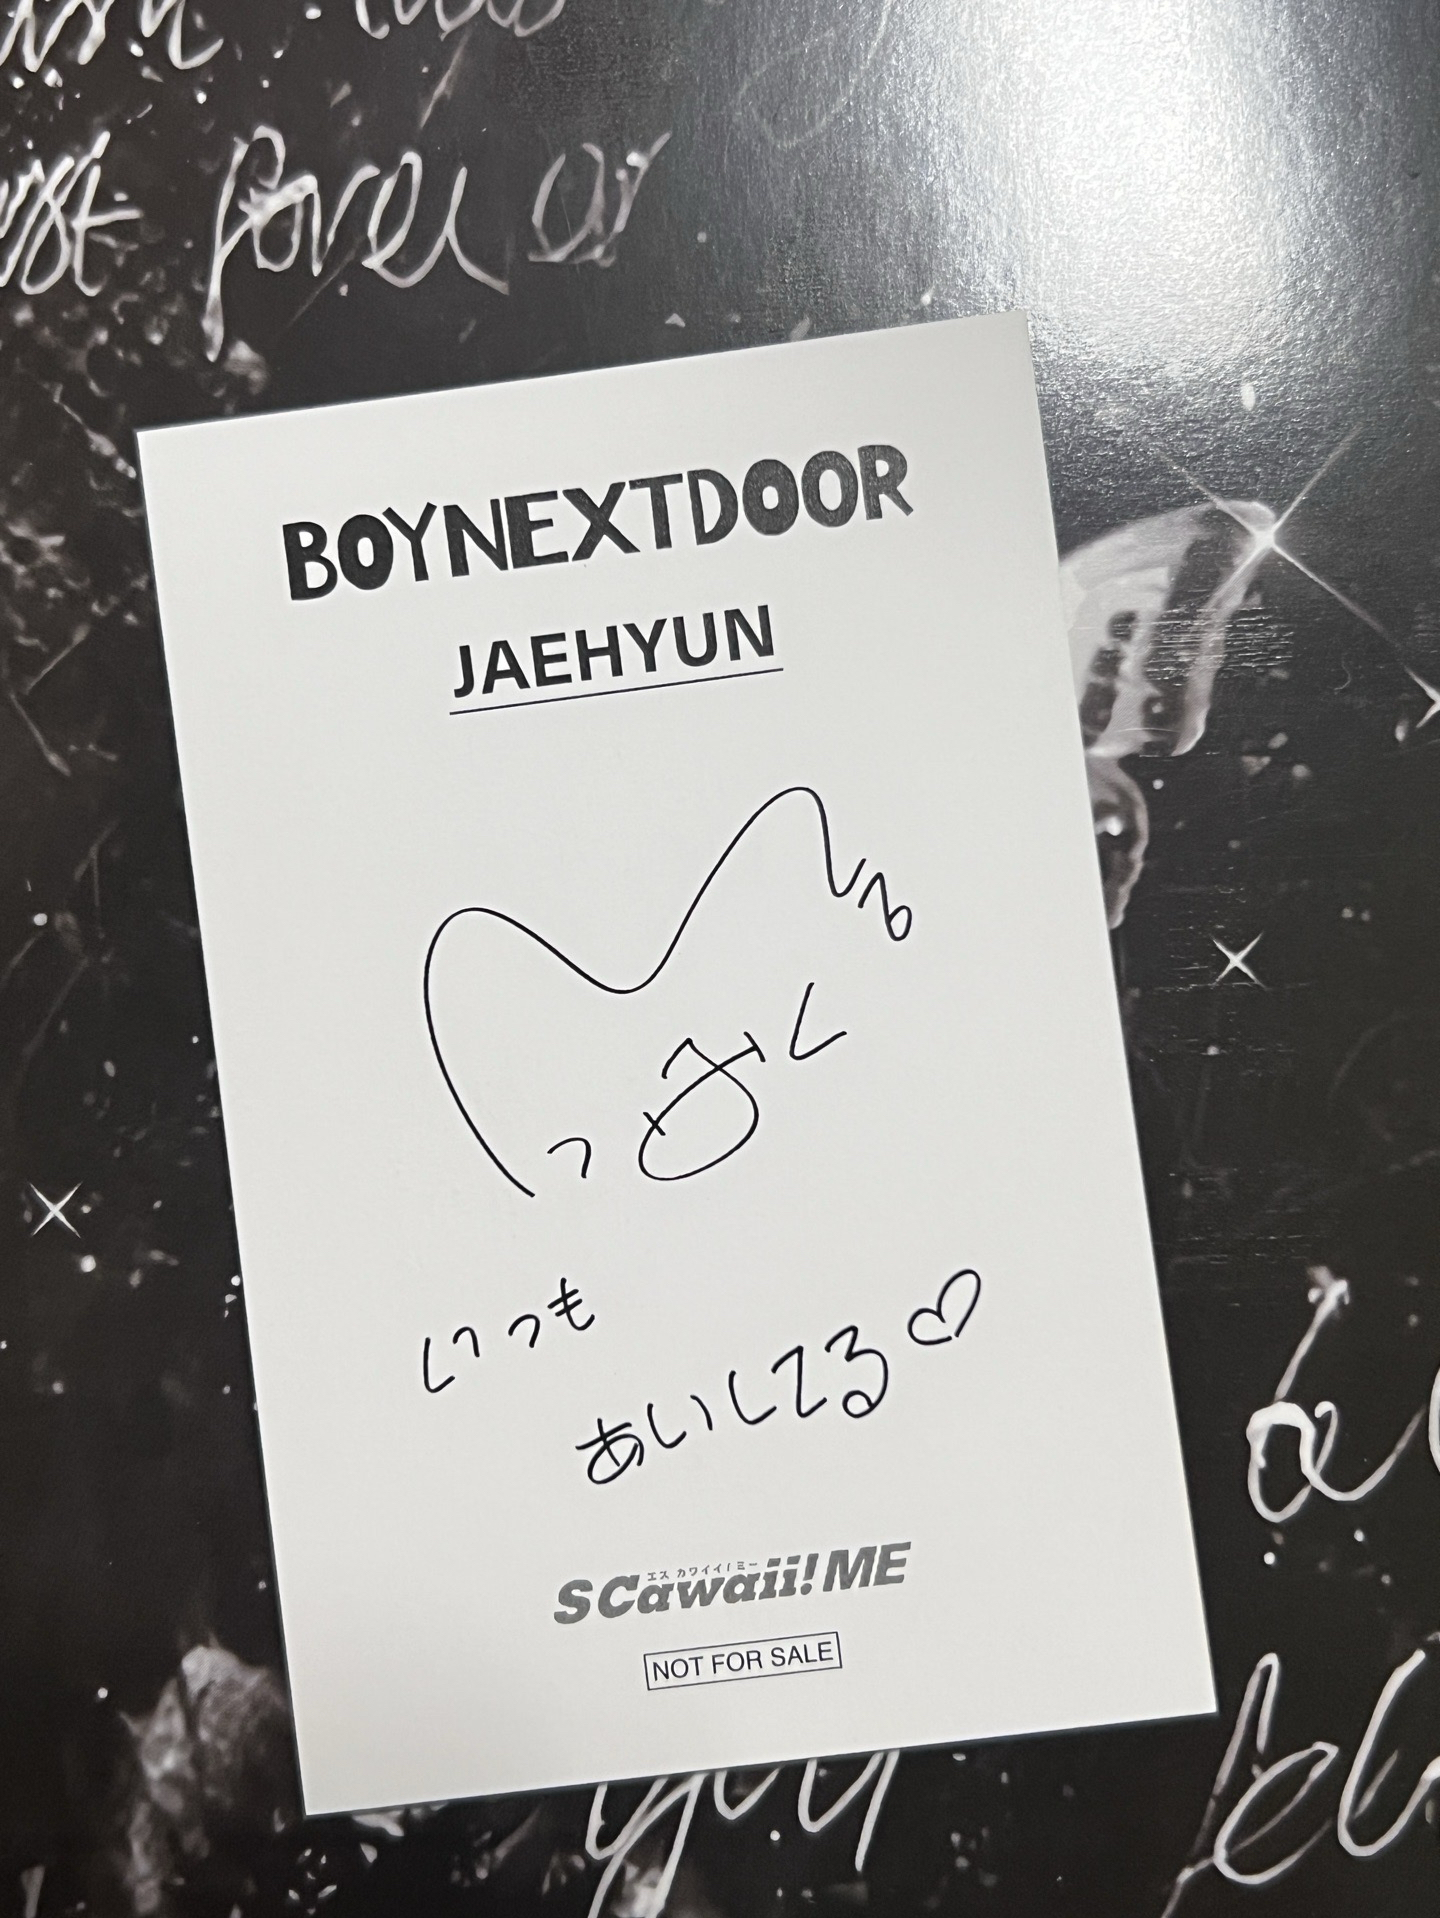 forever
BOYNEXTDOOR
JAEHYUN
いつも
あいしてる♡
エス カワイイ！ミー
SCawaii!ME
NOT FOR SALE
you